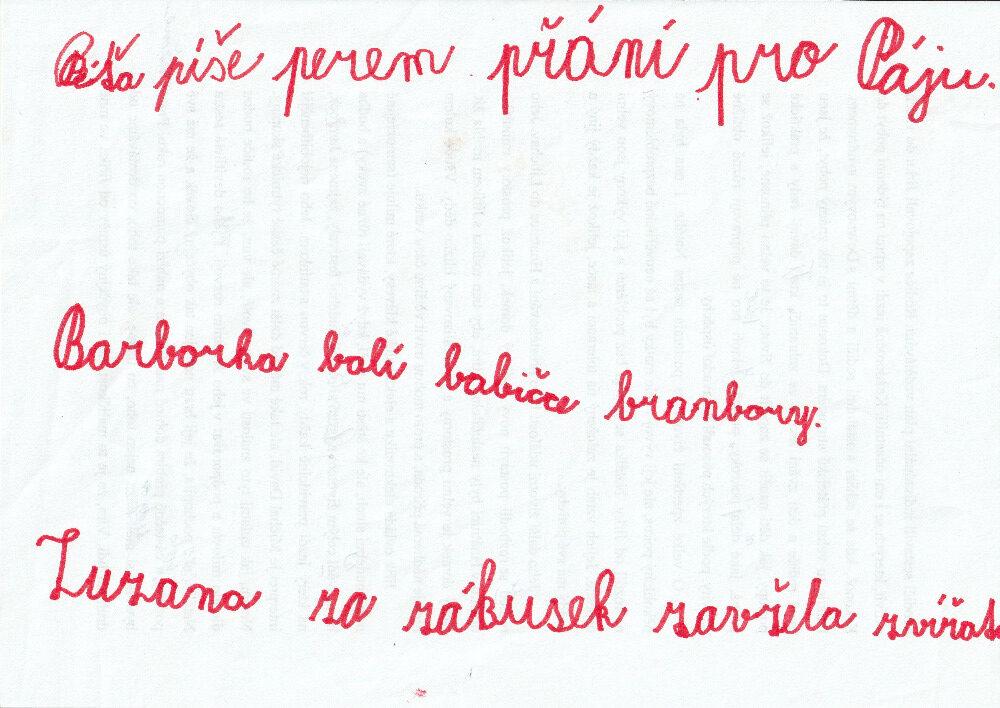 píše perem přání pro Páju.
Barborka balí babičce branbory.
Zuzana za zákusek zavřela